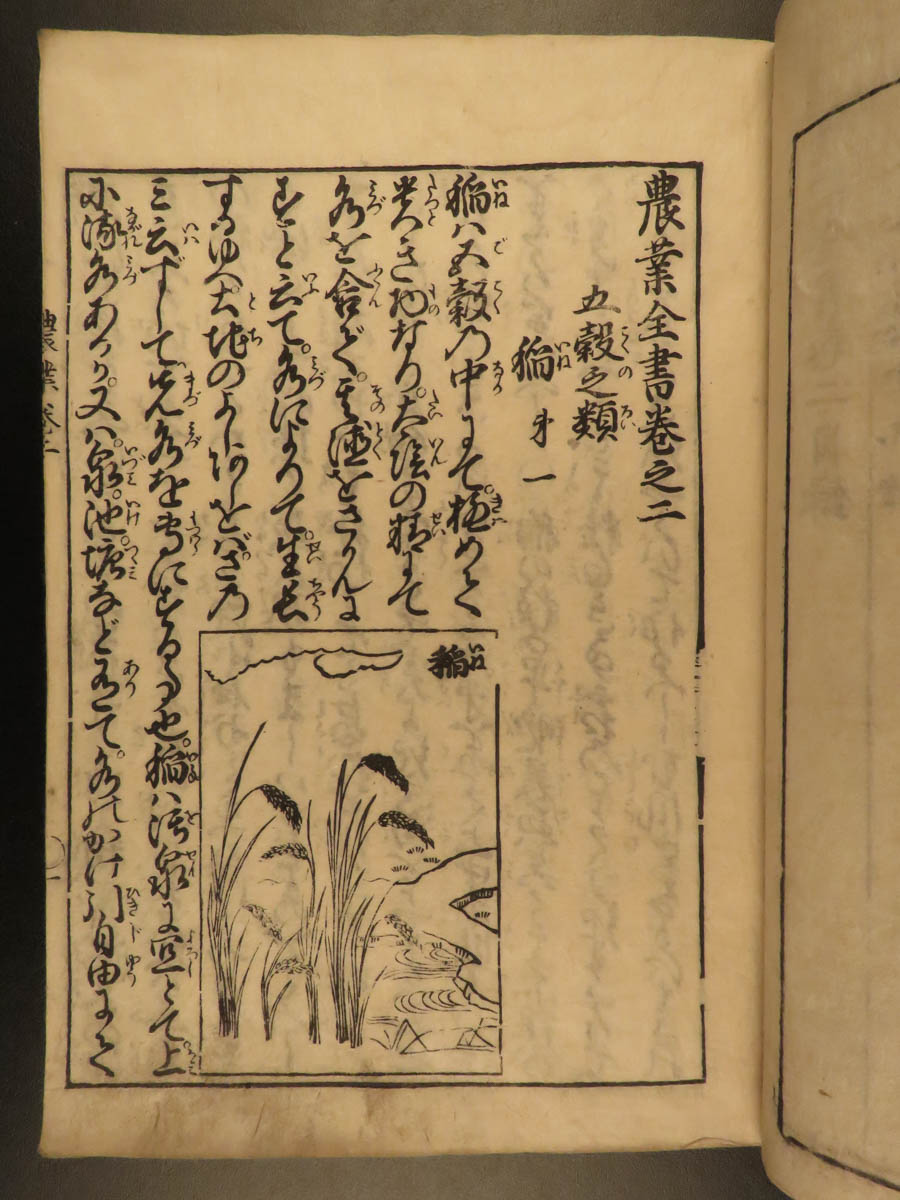 農業全書巻之二
五穀之類
稲 第一
稲ハ五穀乃中にて。極めて
貴き物なり。太陰の精にて
水を含で。其徳をさかんに
すと云て。水によりて。生長
するゆへ土地のよしあしをバさの
ミ云ずして先水を専にする事也。稲ハ活泉に宜とて上
に流水ありか。又ハ。泉。池。塘など有て。水のかけ引自由にて
稲
農業巻二